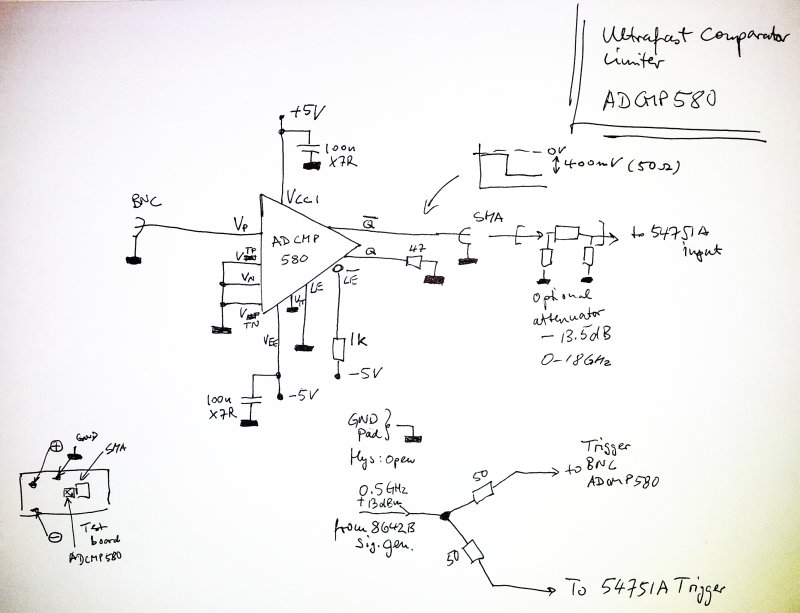 Ultrafast Comparator
Limiter
ADCMP580
+5V
100n
X7R
VCCI
BNC
VP
ADCMP
580
VTP
VN
VTN
VEE
VT
LE
LE
Q
Q
47
1k
-5V
100n
X7R
-5V
0V
400mV (50Ω)
SMA
to 54751A
input
Optional
attenuator
- 13.5dB
0-18GHz
GND
Pad
Hys: Open
0.5GHz
+13dBm
from 8642B
Sig. gen.
50
50
Trigger
to BNC
ADCMP580
To 54751A Trigger
+
GND
SMA
-
Test
board
ADCMP580